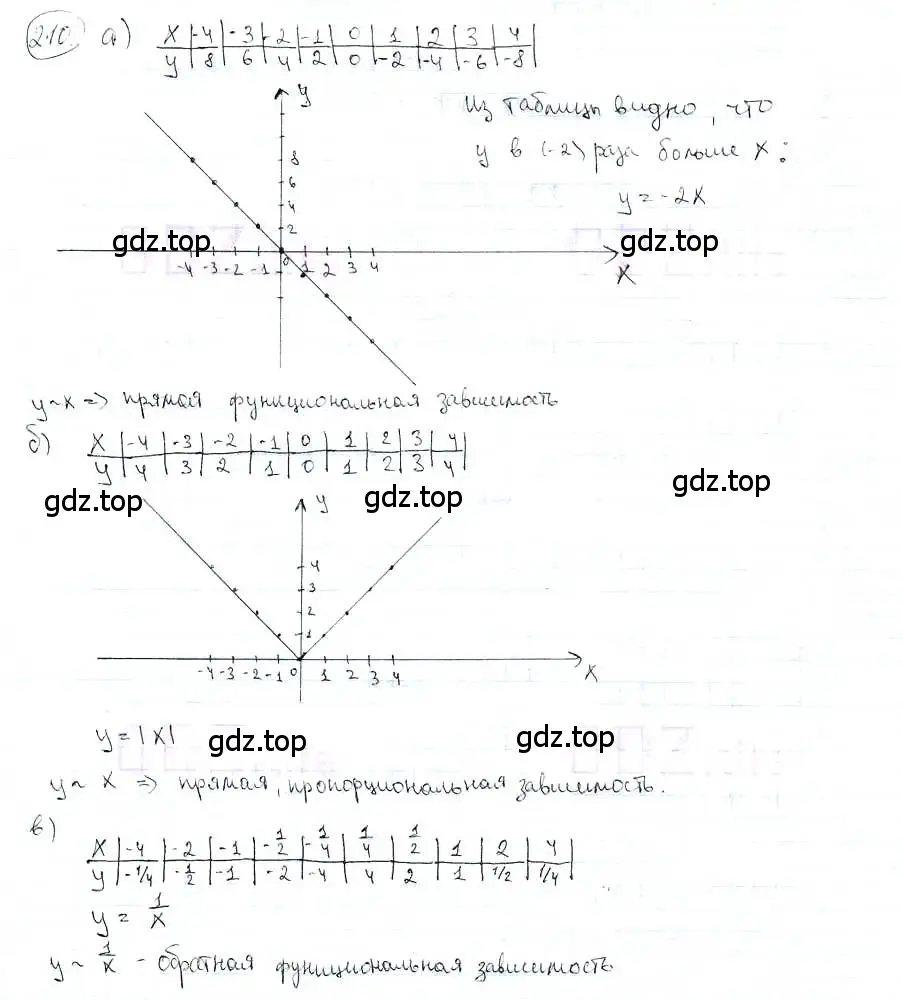 210. а)
x -4 -3 -2 -1 0 1 2 3 4
y 8 6 4 2 0 -2 -4 -6 -8
y
Из таблицы видно, что
y в (-2) раза больше x:
y = -2x
8
6
4
2
gdz.top gdz.top
-4 -3 -2 -1 0 1 2 3 4 x
y ~ x => прямая функциональная зависимость
б)
x -4 -3 -2 -1 0 1 2 3 4
y 4 3 2 1 0 1 2 3 4
gdz.top gdz.top gdz.top
y
4
3
2
1
-4 -3 -2 -1 0 1 2 3 4 x
y = |x|
gdz.top gdz.top
y ~ x => прямая, пропорциональная зависимость.
в)
x -4 -2 -1 -1/2 -1/4 1/4 1/2 1 2 4
y -1/4 -1/2 -1 -2 -4 4 2 1 1/2 1/4
y = 1/x
y ~ 1/x - обратная функциональная зависимость